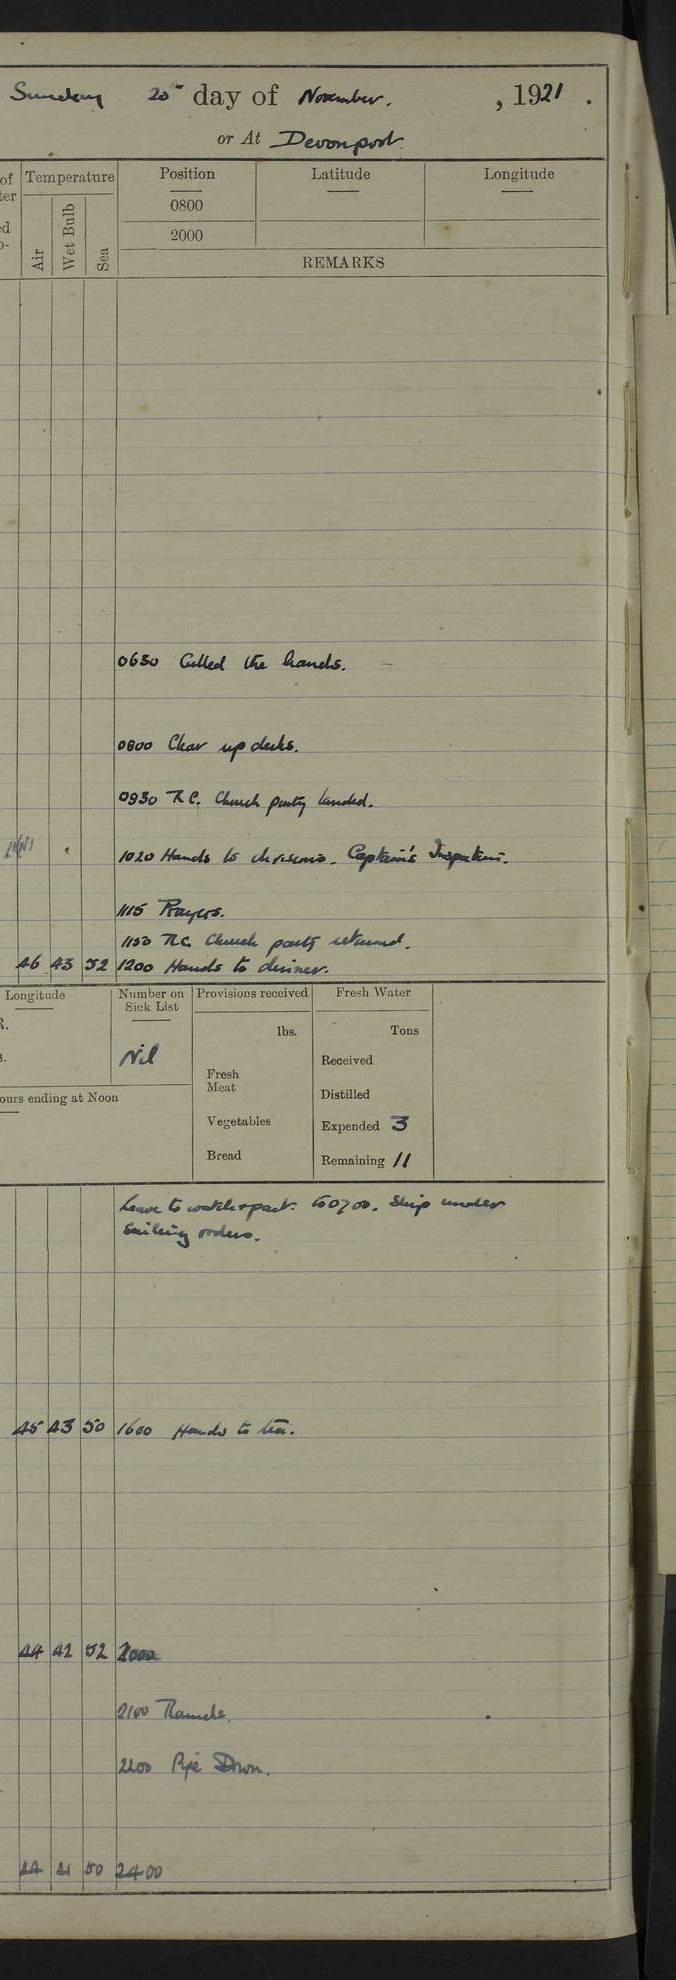 Sunday 20th day of November. , 1921 .
or At Devonport.
of Temperature Position Latitude Longitude
Air Wet Bulb Sea
0800
2000
REMARKS
0630 Called the hands.
0800 Clear up decks.
0930 R.C. Church party landed.
1020 Hands to divisions. Captain's Inspection.
1115 Prayers.
1150 R.C. Church party returned.
46 43 52 1200 Hands to dinner.
Longitude Number on Sick List Provisions received Fresh Water
lbs. Tons
Nil
Received
Fresh Meat
Distilled
ours ending at Noon
Vegetables
Expended 3
Bread
Remaining 11
Leave to watch & part. to 0700. Ship under
Sailing orders.
45 43 50 1600 Hands to tea.
44 42 52 2000
2100 Rounds.
2200 Pipe Down.
44 41 50 2400